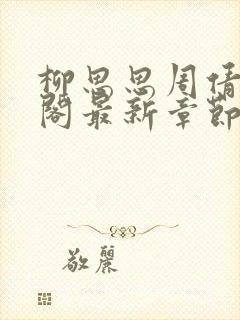 柳思思周倩
阁最新章节
敬丽